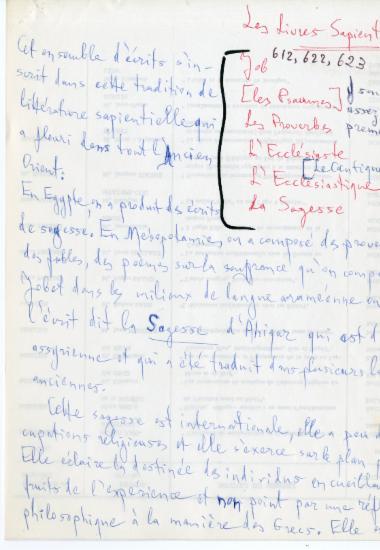 Les Livres Sapient
Cet ensemble d'écrits s'in-
scrit dans cette tradition de
littérature sapientielle qui
a fleuri dans tout l'Ancien
Orient.
Job 612, 622, 623
[Les Psaumes] son
assez
Les Proverbes prem
L'Ecclésiaste
[Le Cantique
L'Ecclésiastique
La Sagesse
En Egypte, on a produit des écrits
de sagesse. En Mésopotamie, on a composé des prove
des fables, des poèmes sur la souffrance qu'on comp
Job et dans les milieux de langue araméenne on
l'écrit dit la Sagesse d'Ahiqar qui est d
assyrienne et qui a été traduit dans plusieurs la
anciennes.
Cette sagesse est internationale, elle a peu d
cupations religieuses et elle s'exerce sur le plan p
Elle éclaire la destinée des individus en cueillan
fruits de l'expérience et non point par une réf
philosophique à la manière des Grecs. Elle a